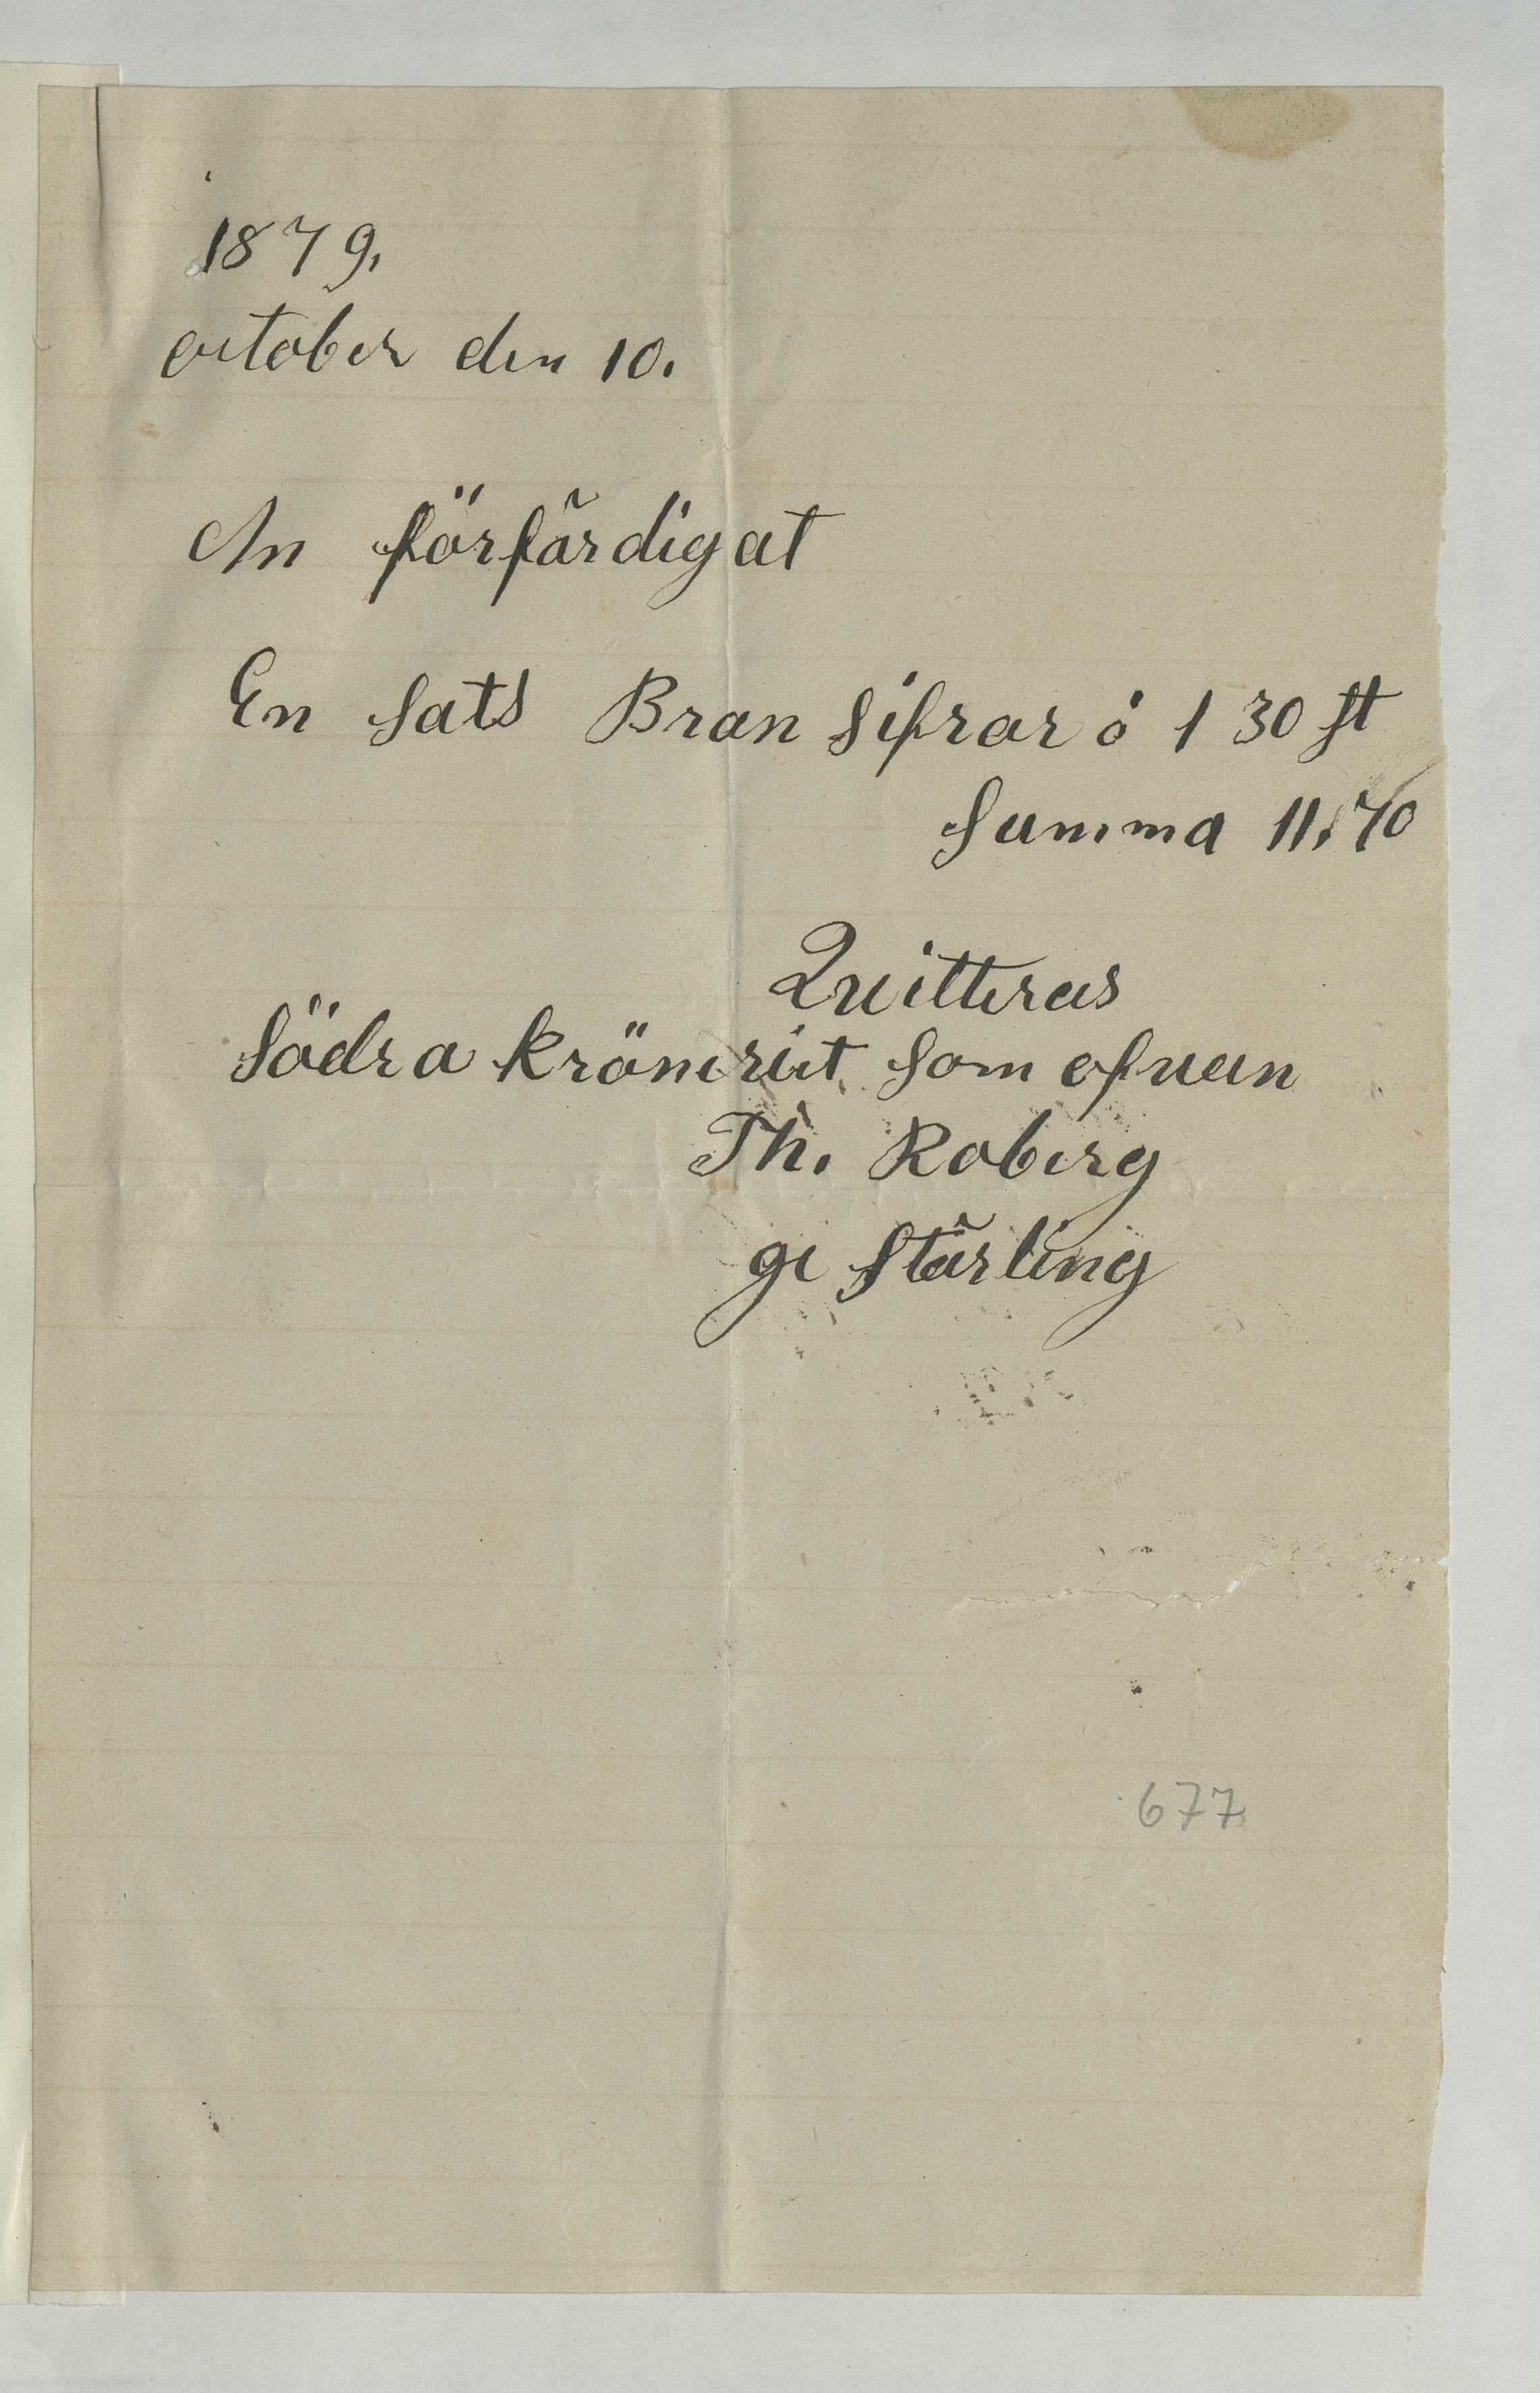 1879.
october den 10.
An förfärdigat
En sats Bran sifrar á 1 30 st
Summa 11.70
Quitteras
Södra kröneriet som ofvan
Th. Roberg
ge Stärling
677